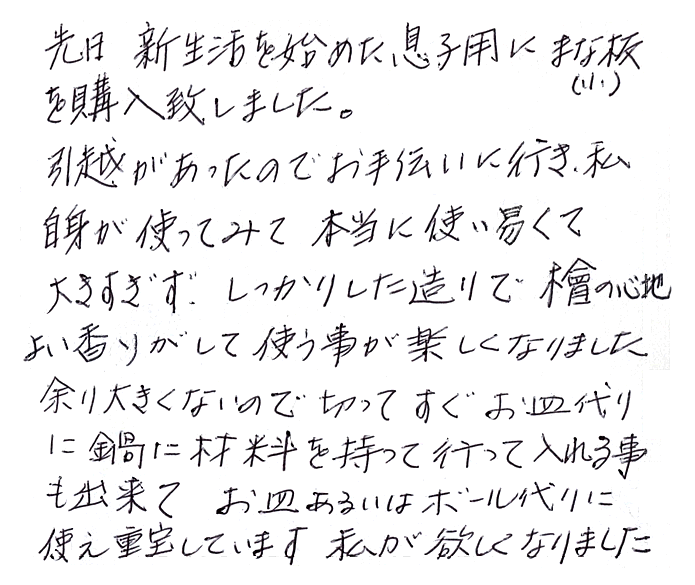 先日 新生活を始めた息子用に まな板
(小)
を購入致しました。
引越があったのでお手伝いに行き、私
自身が使ってみて 本当に使い易くて
大きすぎず、しっかりした造りで 檜の心地
よい香りがして使う事が楽しくなりました
余り大きくないので切ってすぐお皿代り
に鍋に材料を持って行って入れる事
も出来て お皿あるいはボール代りに
使え重宝しています 私が欲しくなりました